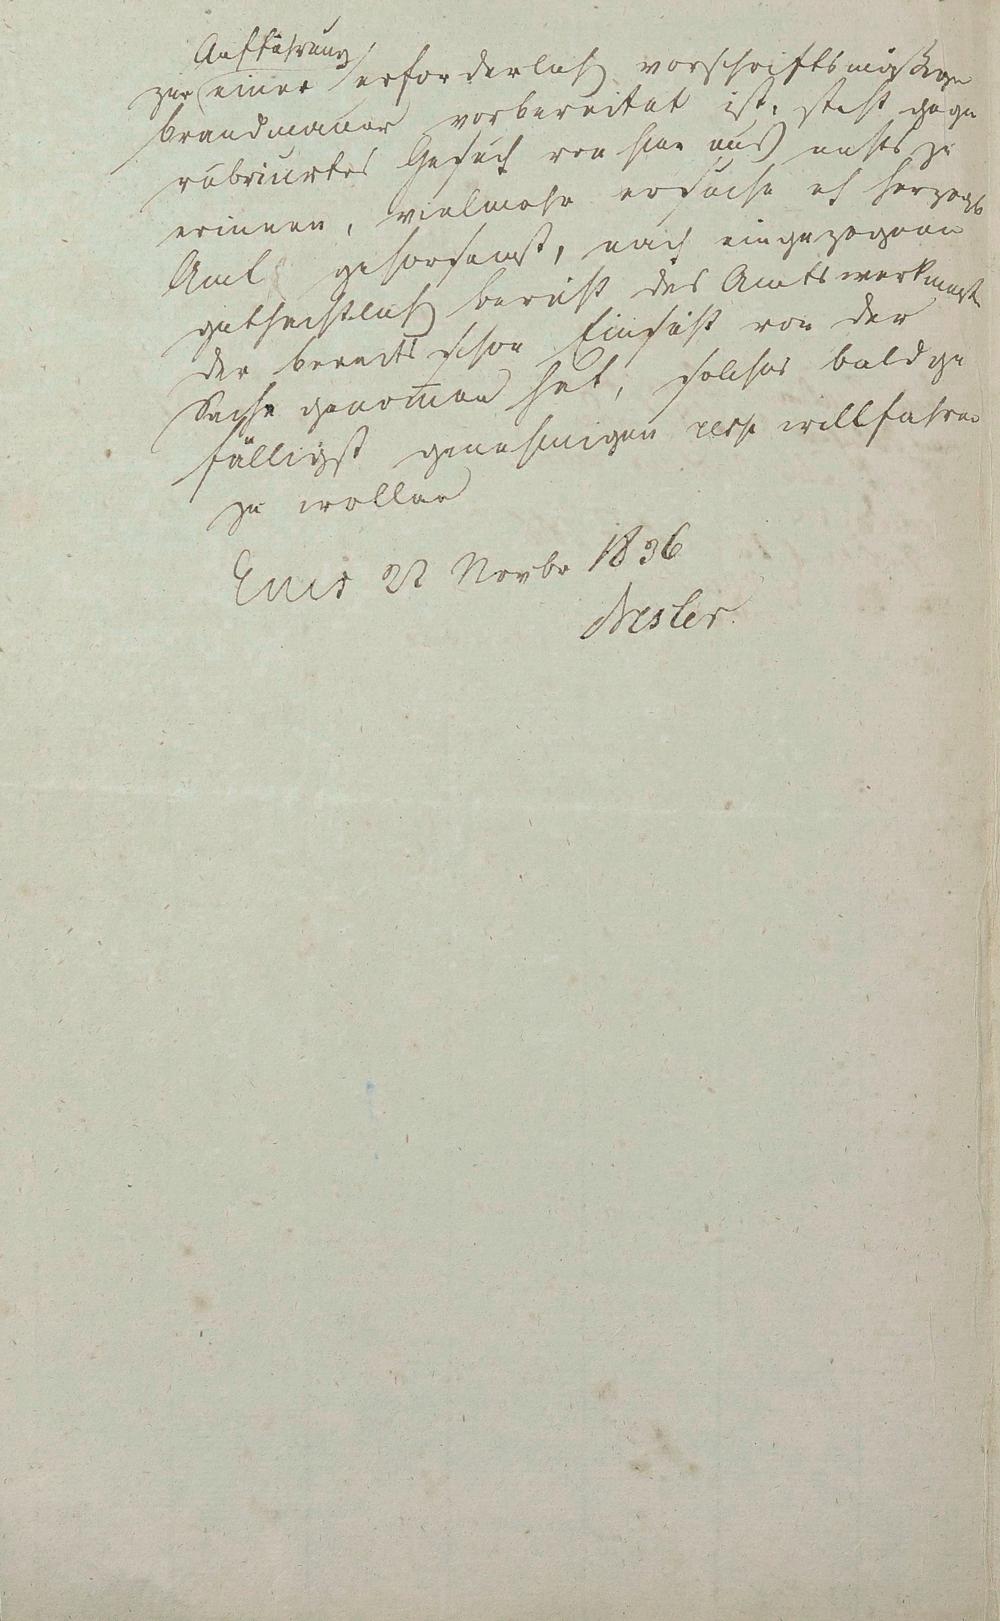 Aufführung
zur einer erforderlich vorschriftsmäßigen
brandmauer vorbereitet ist, steht gegen
rubricirtes Gesuch von hier aus nichts zu
erinnern, vielmehr ersuche ich Herzogl
Amt gehorsamst, nach eingezogenen
gutachtlich bericht des Amtswerkmeist
der bereits schon Einsicht von der
Sache genom̄en hat, solches baldge
fälligst genehmigen willfahren
zu wollen
Ems 22 Novbr 1836